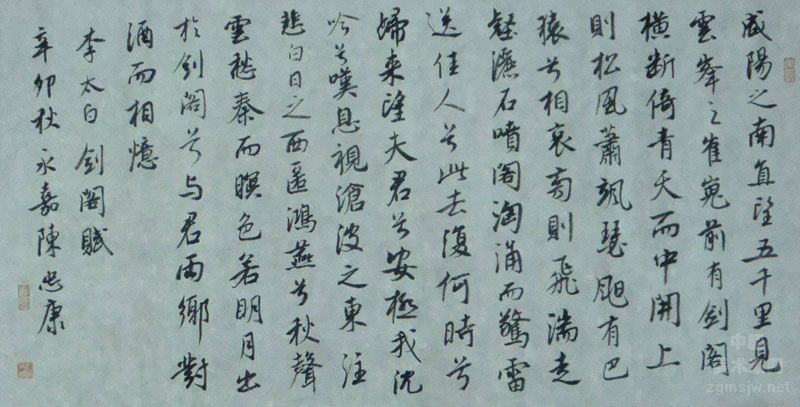 咸陽之南直望五千里見
雲峯之崔嵬前有劍閣
橫斷倚青天而中開上
則松風蕭颯瑟颶有巴
猿兮相哀旁則飛湍走
壑灑石噴閣洶涌而驚雷
送佳人兮此去復何時兮
歸来望夫君兮安極我沈
吟兮嘆息視滄波之東注
悲白日之西匿鴻燕兮秋聲
雲愁秦而暝色若明月出
於劍閣兮与君兩鄉對
酒而相憶
李太白劍閣賦
辛卯秋永嘉陳忠康
zgmsjw.net